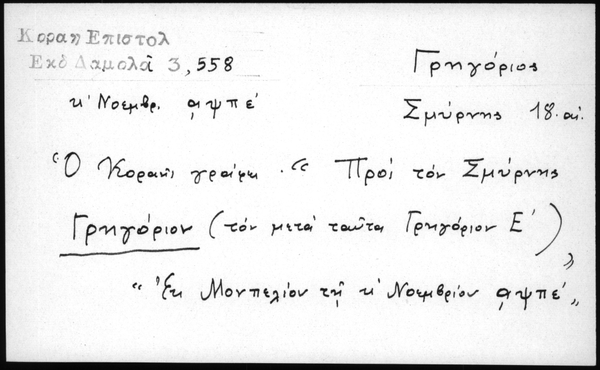 Κοραη Επιστολ
Εκδ Δαμαλᾶ 3, 558
Γρηγόριος
κʹ Νοεμβρ. ͵αψπεʹ
Σμύρνης 18. αἰ.
"Ὁ Κοραῆς γράφει · " Πρὸς τὸν Σμύρνης
Γρηγόριον (τὸν μετὰ ταῦτα Γρηγόριον Εʹ) "
" Ἐκ Μονπελίου τῇ κʹ Νοεμβρίου ͵αψπεʹ "